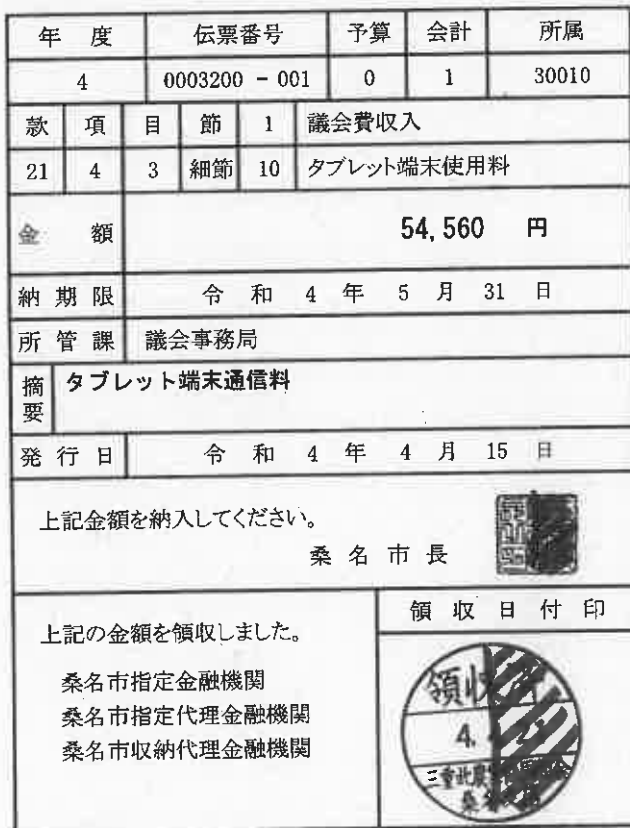 年 度 伝票番号 予算 会計 所属
4 0003200 - 001 0 1 30010
款 項 目 節 1 議会費収入
21 4 3 細節 10 タブレット端末使用料
金 額 54,560 円
納 期 限 令 和 4 年 5 月 31 日
所 管 課 議会事務局
摘要 タブレット端末通信料
発 行 日 令 和 4 年 4 月 15 日
上記金額を納入してください。
桑 名 市 長
領 収 日 付 印
上記の金額を領収しました。
桑名市指定金融機関
桑名市指定代理金融機関
桑名市収納代理金融機関
領収
4.
三重北農
桑名